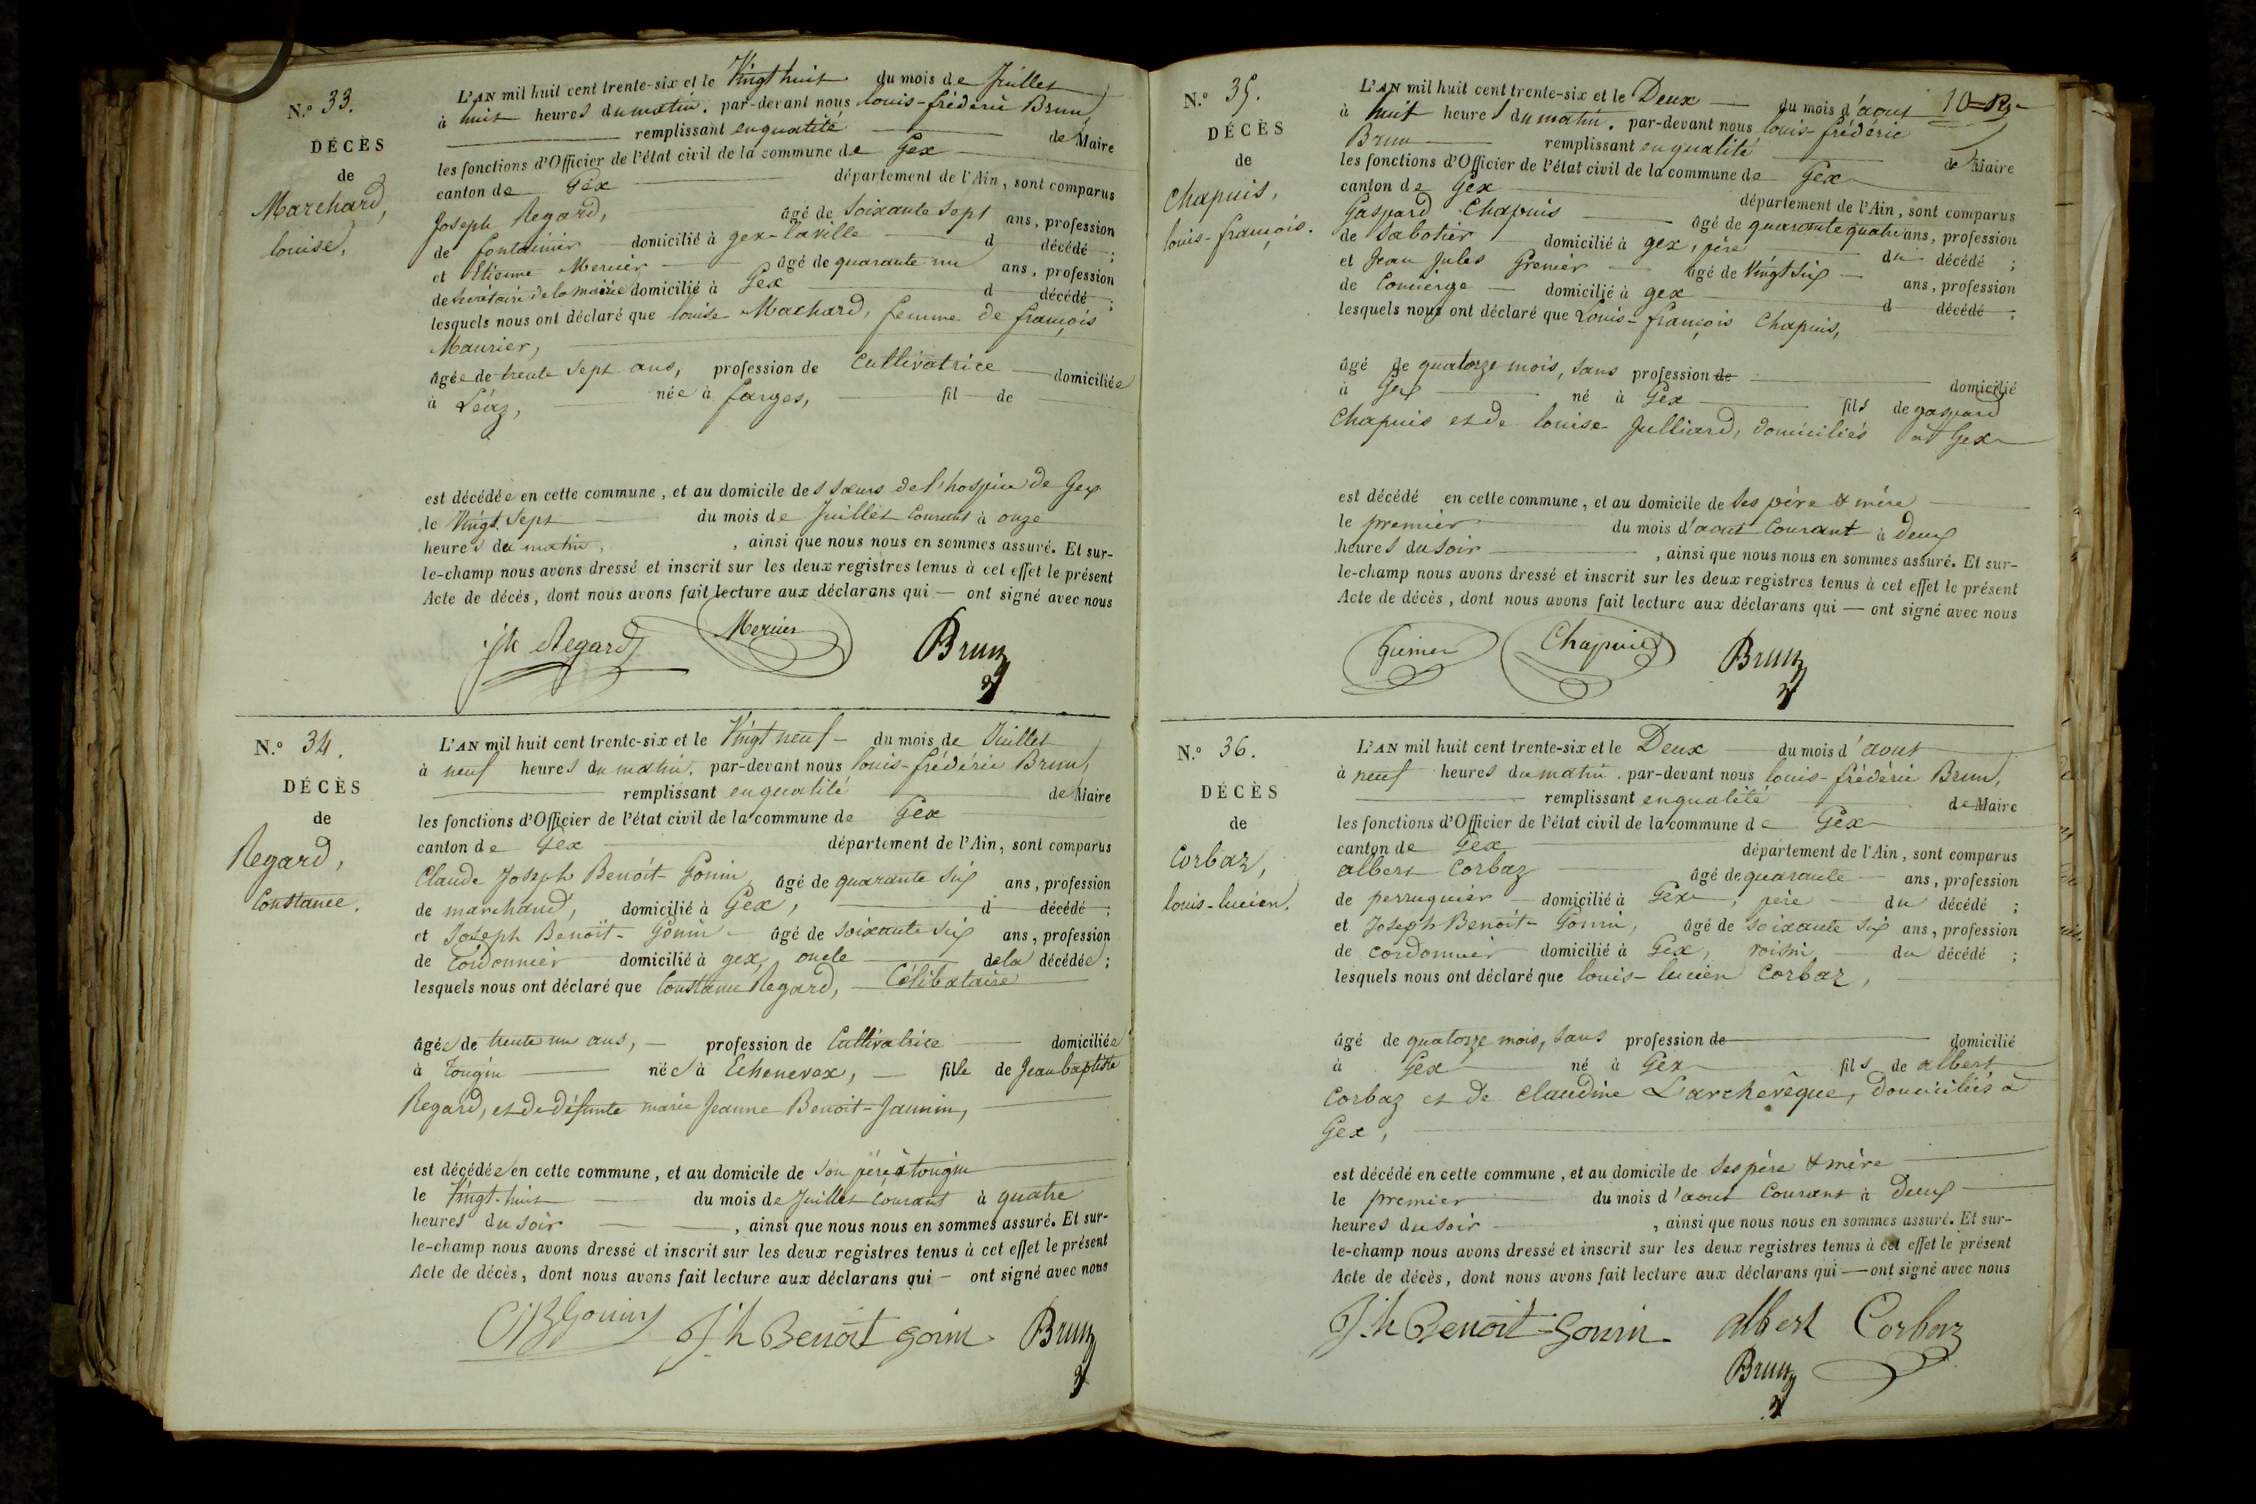 N.° 33.
DÉCÈS
de
Marchard,
louise.
L'AN mil huit cent trente-six et le Vingt huit du mois de Juillet
à huit heures du matin. par-devant nous louis-frédéric Brun,
remplissant en qualité de Maire
les fonctions d'Officier de l'état civil de la commune de Gex
canton de Gex département de l'Ain, sont comparus
Joseph Regard, âgé de soixante sept ans, profession
de fontainier domicilié à gex-laville d décédé ;
et Etienne Mercier âgé de quarante un ans, profession
de Secrétaire de la mairie domicilié à Gex d décédé ;
lesquels nous ont déclaré que louise Machard, femme de françois
Maurier,
âgée de trente sept ans, profession de Cultivatrice domiciliée
à Léaz, née à farges, fil de
est décédée en cette commune, et au domicile des sœurs de l'hospice de Gex
le Vingt sept du mois de Juillet Courant à onze
heures du matin, ainsi que nous nous en sommes assuré. Et sur-
le-champ nous avons dressé et inscrit sur les deux registres tenus à cet effet le présent
Acte de décès, dont nous avons fait lecture aux déclarans qui — ont signé avec nous
jh Regard Mercier Brun
N.° 34.
DÉCÈS
de
Regard,
Constance.
L'AN mil huit cent trente-six et le Vingt neuf du mois de Juillet
à neuf heures du matin. par-devant nous louis-frédéric Brun,
remplissant en qualité de Maire
les fonctions d'Officier de l'état civil de la commune de Gex
canton de Gex département de l'Ain, sont comparus
Claude Joseph Benoît-Gonin âgé de quarante six ans, profession
de marchand, domicilié à Gex, d décédé ;
et Joseph Benoît-Gonin âgé de soixante six ans, profession
de Cordonnier domicilié à gex, oncle de la décédée ;
lesquels nous ont déclaré que Constance Regard, Célibataire
âgée de trente un ans, — profession de Cultivatrice domiciliée
à Tougin née à Echenevex, — fille de Jean baptiste
Regard, et de défunte marie Jeanne Benoit-Jannin,
est décédée en cette commune, et au domicile de son père à tougin
le Vingt-huit du mois de Juillet Courant à quatre
heures du soir, ainsi que nous nous en sommes assuré. Et sur-
le-champ nous avons dressé et inscrit sur les deux registres tenus à cet effet le présent
Acte de décès, dont nous avons fait lecture aux déclarans qui — ont signé avec nous
CJBGonin J.h Benoit gonin Brun
N.° 35.
DÉCÈS
de
Chapuis,
louis-françois.
L'AN mil huit cent trente-six et le Deux du mois d'aout 10
à huit heures du matin. par-devant nous louis-frédéric
Brun remplissant en qualité de Maire
les fonctions d'Officier de l'état civil de la commune de Gex
canton de Gex département de l'Ain, sont comparus
Gaspard Chapuis âgé de quarante quatre ans, profession
de Sabotier domicilié à gex, père du décédé ;
et Jean Jules Grenier âgé de Vingt six ans, profession
de Concierge domicilié à gex d décédé ;
lesquels nous ont déclaré que Louis-françois Chapuis,
âgé de quatorze mois, sans profession de domicilié
à Gex né à Gex fils de gaspard
Chapuis et de louise Julliard, domiciliés à Gex
est décédé en cette commune, et au domicile de ses père & mère
le premier du mois d'aout Courant à Deux
heures du soir, ainsi que nous nous en sommes assuré. Et sur-
le-champ nous avons dressé et inscrit sur les deux registres tenus à cet effet le présent
Acte de décès, dont nous avons fait lecture aux déclarans qui — ont signé avec nous
Grenier Chapuis Brun
N.° 36.
DÉCÈS
de
Corbaz,
louis-lucien.
L'AN mil huit cent trente-six et le Deux du mois d'aout
à neuf heures du matin. par-devant nous louis-frédéric Brun,
remplissant en qualité de Maire
les fonctions d'Officier de l'état civil de la commune de Gex
canton de Gex département de l'Ain, sont comparus
albert Corbaz âgé de quarante ans, profession
de perruquier domicilié à Gex, père du décédé ;
et Joseph Benoît-Gonin, âgé de soixante six ans, profession
de cordonnier domicilié à Gex, voisin du décédé ;
lesquels nous ont déclaré que louis-lucien Corbaz,
âgé de quatorze mois, sans profession de domicilié
à Gex né à Gex fils de albert
Corbaz et de Claudine Larchevêque, domiciliés à
Gex,
est décédé en cette commune, et au domicile de ses père & mère
le premier du mois d'aout Courant à Deux
heures du soir, ainsi que nous nous en sommes assuré. Et sur-
le-champ nous avons dressé et inscrit sur les deux registres tenus à cet effet le présent
Acte de décès, dont nous avons fait lecture aux déclarans qui — ont signé avec nous
J.h Benoit-gonin albert Corbaz
Brun